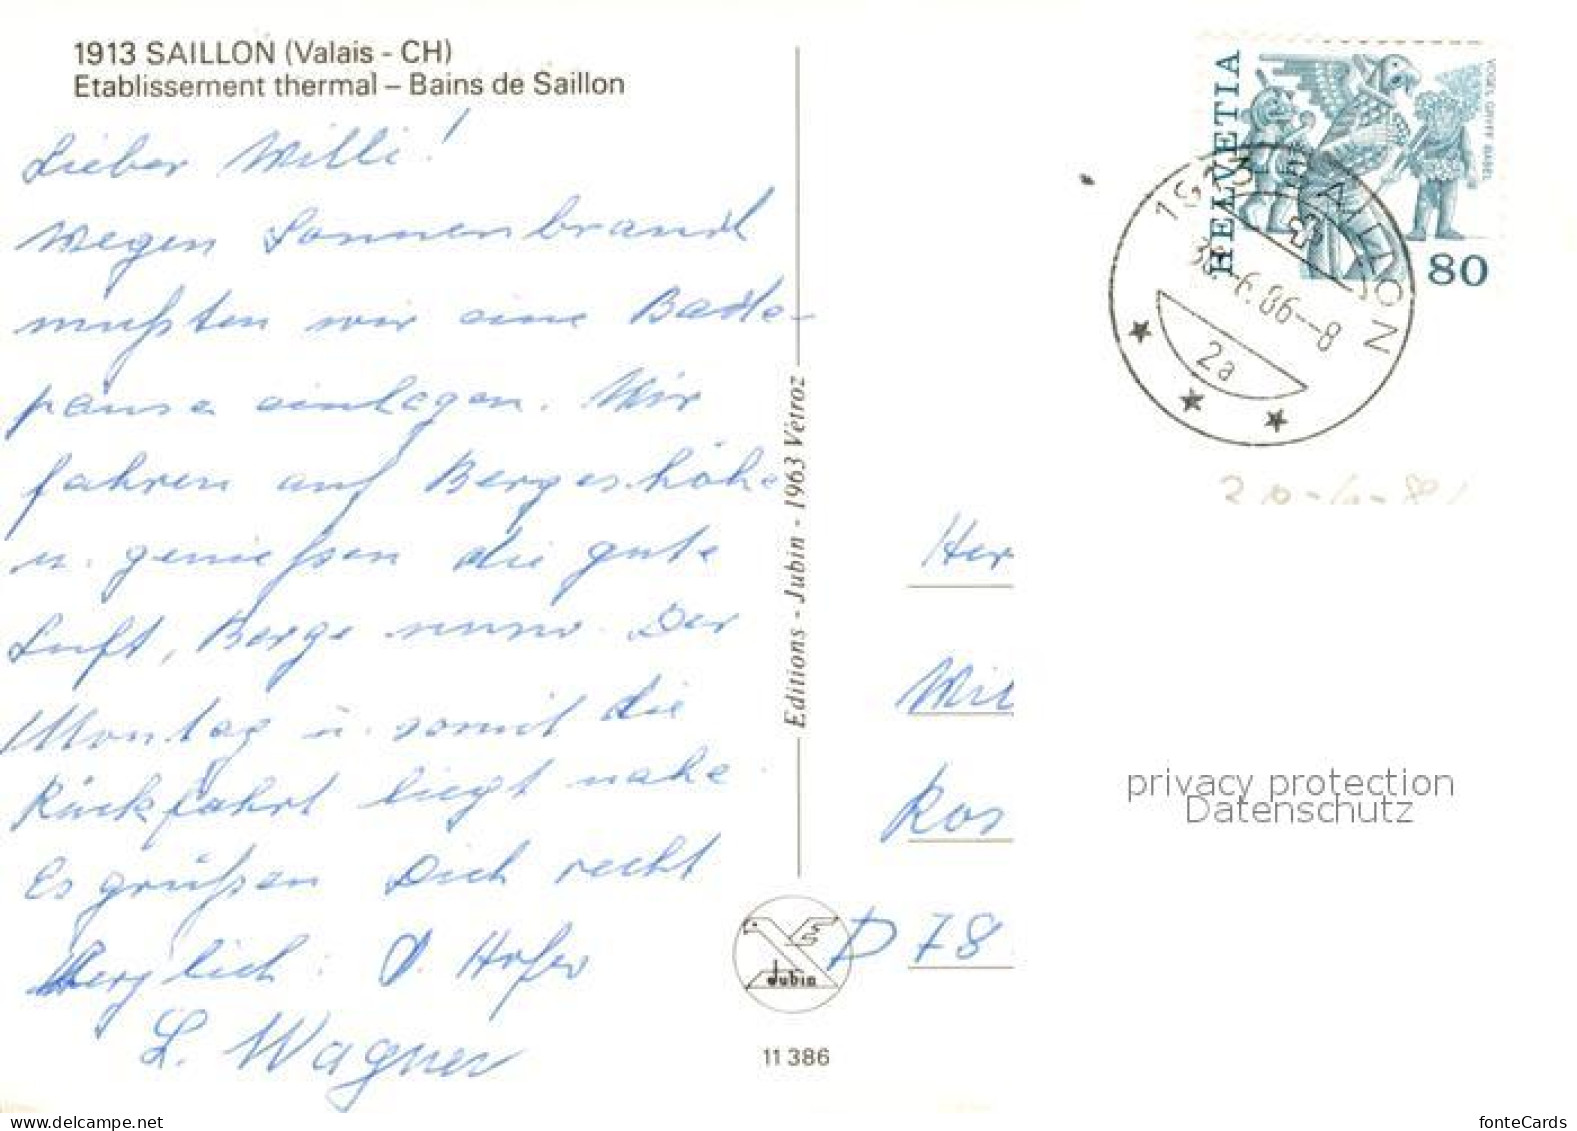 1913 SAILLON (Valais - CH)
Etablissement thermal – Bains de Saillon
Lieber Willi!
Wegen Sonnenbrand
mußten wir eine Bade-
pause einlegen. Wir
fahren auf Bergeshöhe
u. genießen die gute
Luft, Berge usw. Der
Montag u. somit die
Rückfahrt liegt nahe.
Es grüßen Dich recht
herzlich: Hofer
L. Wagner
Editions - Jubin - 1963 Vétroz
Jubin
11 386
HELVETIA
VOGEL GRYFF BASEL
80
1913 SAILLON
30.-6.86--8
2a
Her
Wil
Ros
D 78
privacy protection
Datenschutz
www.delcampe.net
fonteCards